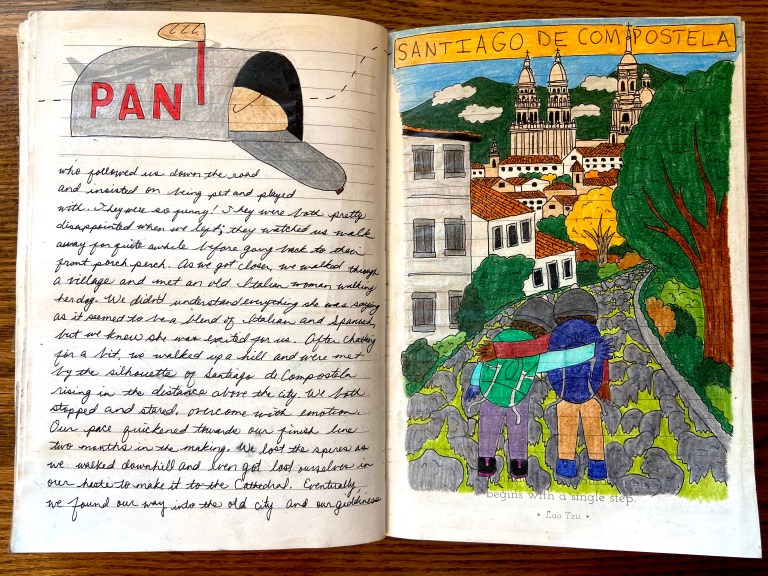 PAN
who followed us down the road
and insisted on being pet and played
with. They were so funny! They were both pretty
disappointed when we left; they watched us walk
away for quite awhile before going back to their
front porch perch. As we got closer, we walked through
a village and met an old Italian woman walking
her dog. We didn't understand everything she was saying
as it seemed to be a blend of Italian and Spanish,
but we knew she was excited for us. After chatting
for a bit, we walked up a hill and were met
by the silhouette of Santiago de Compostela
rising in the distance above the city. We both
stopped and stared, overcome with emotion.
Our pace quickened towards our finish line
two months in the making. We lost the spires as
we walked downhill and even got lost ourselves in
our haste to make it to the Cathedral. Eventually,
we found our way into the old city and our giddiness
SANTIAGO DE COMPOSTELA
begins with a single step.
• Lao Tzu •